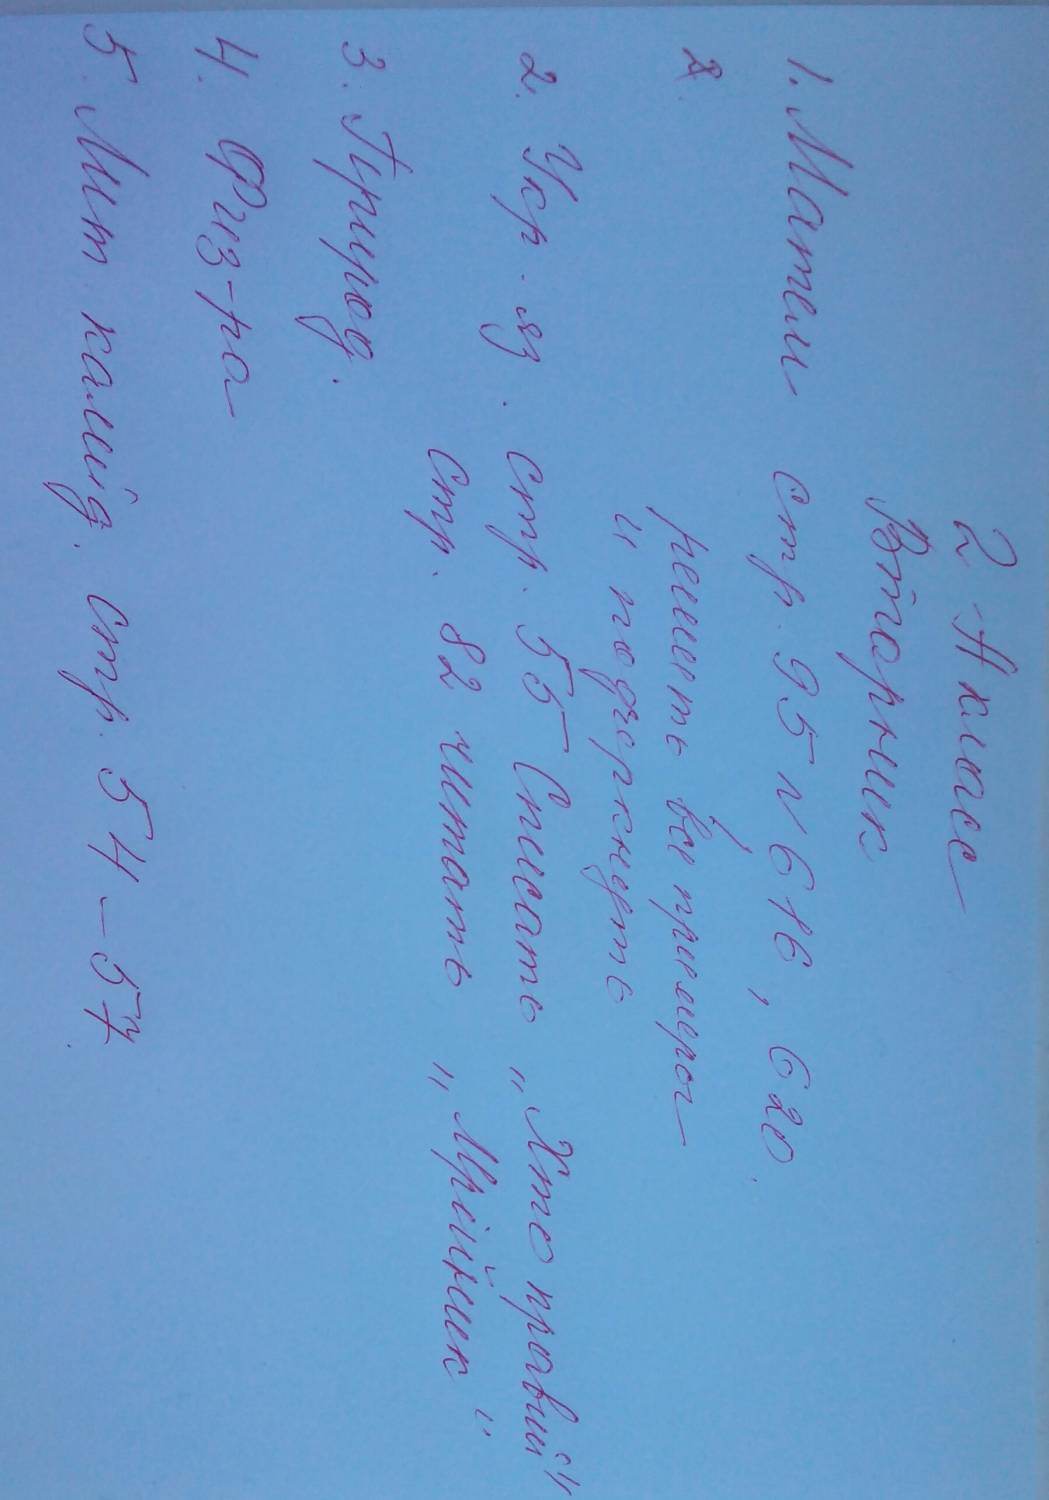 2-А класс
Вторник
1. Матем стр. 95 № 616, 620.
2. решить все примеры
и подчеркнуть
2. Укр. яз. стр. 55 Списать „Хто правий"
стр. 82 читать „Мрійник"
3. Природ.
4. Физ-ра
5. Лит. стр. 54 – 57.